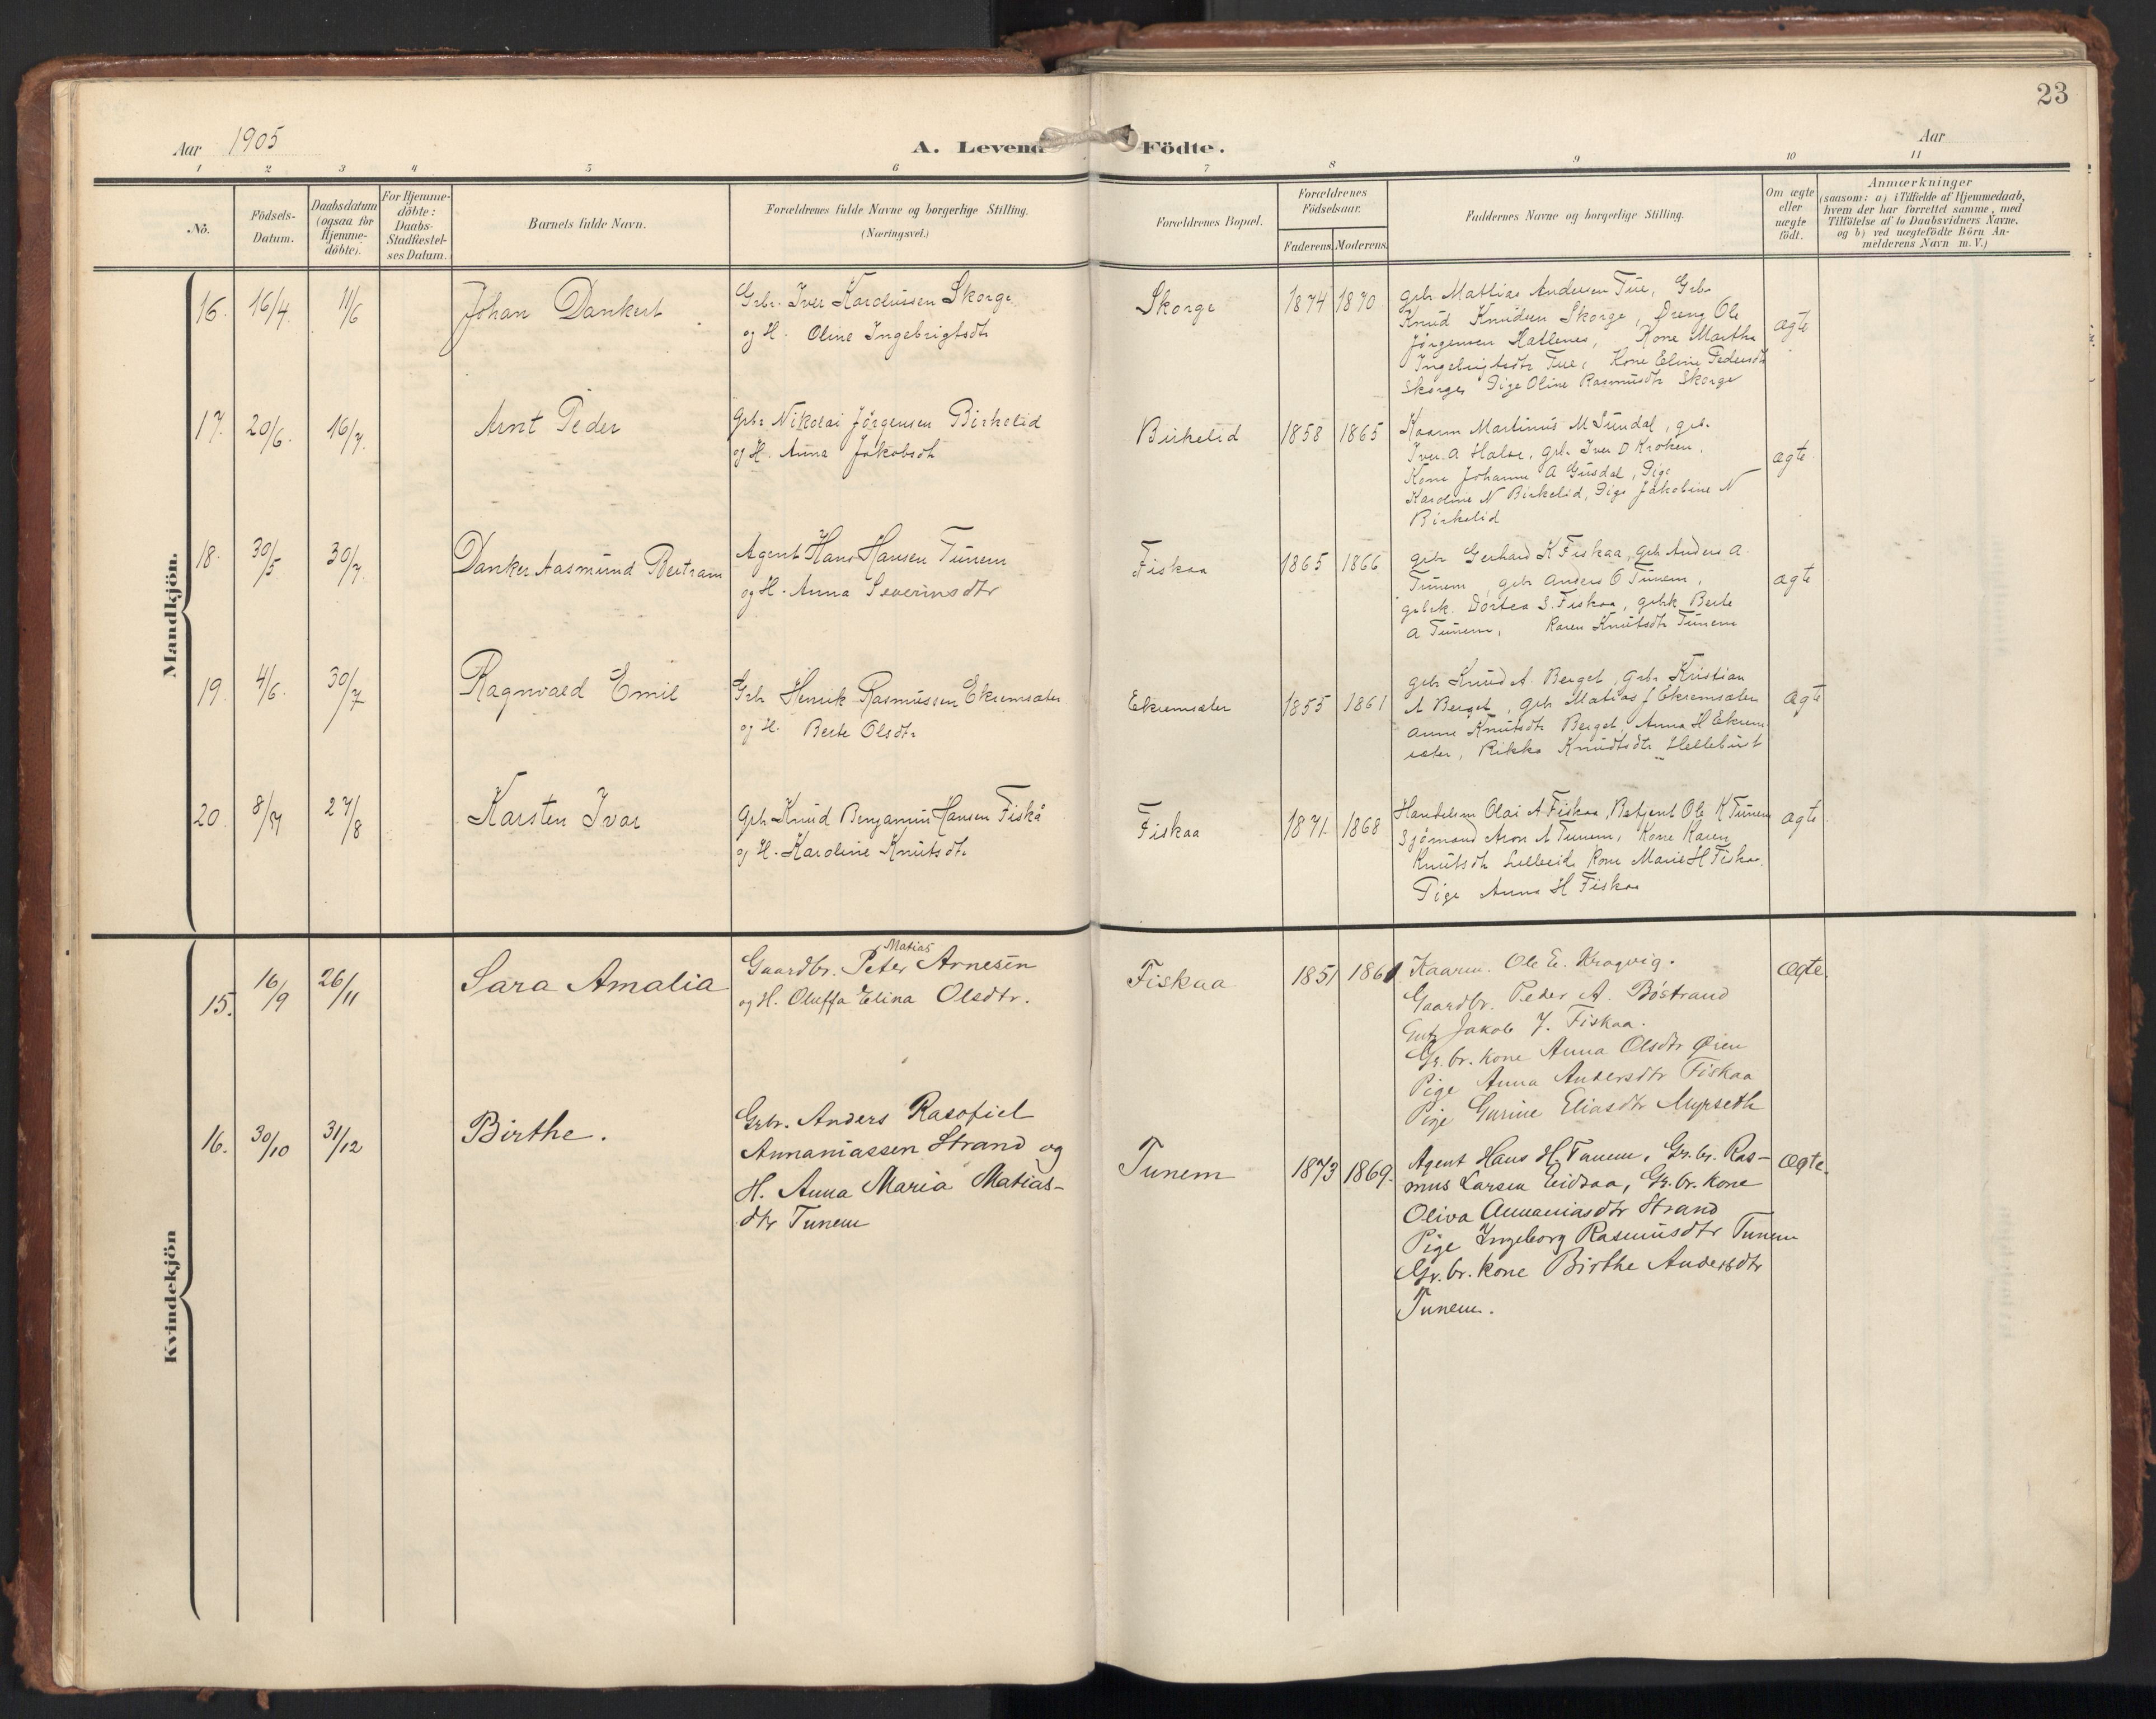 23
Aar 1905
A. Levende Födte.
Aar
1 2 3 4 5 6 7 8 9 10 11
No.
Födsels-
Datum.
Daabsdatum
(ogsaa for
Hjemme-
döbte).
For Hjemme-
döbte:
Daabs-
Stadfæstel-
ses Datum.
Barnets fulde Navn.
Forældrenes fulde Navne og borgerlige Stilling.
(Næringsvei.)
Forældrenes Bopæl.
Forældrenes
Födselsaar.
Faderens. Moderens.
Faddernes Navne og borgerlige Stilling.
Om ægte
eller
uægte
födt.
Anmærkninger
(saasom: a) i Tilfælde af Hjemmedaab,
hvem der har forrettet samme, med
Tilföielse af to Daabsvidners Navne,
og b) ved uægtefödte Börn An-
melderens Navn m. V.)
Mandkjön.
16. 16/4. 11/6
Johan Dankert
Grbr. Iver Kardussen Skorge
og H. Oline Ingebrigtsdtr
Skorge
1874 1870
gbr Mattias Andersen Tue, Grbr
Knud Knudsen Skorge, Dreng Ole
Jörgensen Hatlenes, Kone Martha
Ingebrigtsdtr Tue, Kone Eline Pedersdtr
Skorge, Pige Oline Rasmusdtr Skorge
ægte
17. 20/6. 16/7.
Arnt Peder
Gbr Nikolai Jörgensen Birkelid
og H. Anna Jakobsdtr
Birkelid
1858 1865
Kaarm Martinus M Sundal, gbr.
Iver A Halse, gbr Iver D Kroken.
Kone Johanne A Gusdal, Pige
Karoline N Birkelid, Pige Jakobine N
Birkelid
ægte
18. 30/5 30/7.
Danker Aasmund Bertram
Agent Hans Hansen Tunem
og H. Anna Severinsdtr
Fiskaa
1865 1866
gbr Gerhard K Fiskaa, gbr Anders A.
Tunem, gbr Anders O Tunem,
gbrk. Dortea S. Fiskaa, gbrk Berte
A Tunem, Karen Knutsdtr Tunem
ægte
19. 4/6. 30/7
Ragnvald Emil
Grbr Henrik Rasmussen Ekremsæter
og H. Berte Olsdtr
Ekremsæter
1855 1861
gbr Knud A. Berget, Grbr Kristian
A Berget, gbr Matias J Ekremsæter
Anne Knutsdtr Berget, Anna H Ekrem
sæter, Rikka Knudtsdtr Hellebust
ægte
20. 8/7 27/8
Karsten Ivar
Gbr Knud Benjamin Hansen Fiskå
og H. Karoline Knutsdtr
Fiskaa
1871. 1868
Handelsm Olai A Fiskaa, Betjent Ole K Tunem
Sjömand Aron A Tunem, Kone Karen
Knutsdtr Lilleeid, Kone Marie H Fiskaa.
Pige Anna H Fiskaa
ægte
Kvindekjön
15. 16/9 26/11
Sara Amalia
Matias
Gaardbr. Peter Arnesen
og H. Oluffa Elina Olsdtr.
Fiskaa
1851 1861
Kaarm. Ole E. Kragvig.
Gaardbr. Peder A. Böstrand
Gut Jakob J. Fiskaa.
Gr.br. kone Anna Olsdtr Øien
Pige Anna Andersdtr Fiskaa
Pige Gurine Eliasdtr Myrseth
ægte.
16. 30/10 31/12
Birthe.
Grbr. Anders Rasofiel
Annaniassen Strand og
H. Anna Maria Matias-
dtr Tunem
Tunem
1873 1869.
Agent Hans H. Tunem, Gr.br. Ras-
mus Larsen Eidsaa, Gr.br. kone
Oliva Annaniasdtr Strand
Pige Ingeborg Rasmusdtr Tunem
Gr.br. kone Birthe Andersdtr
Tunem.
ægte.